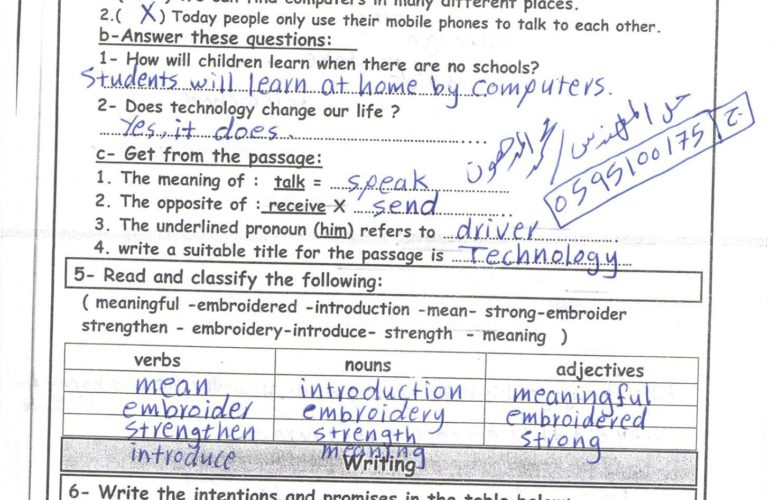 in many different places.
2.( X ) Today people only use their mobile phones to talk to each other.
b-Answer these questions:
1- How will children learn when there are no schools?
Students will learn at home by computers.
2- Does technology change our life ?
Yes, it does.
حل المهندس /
ج 0595100175
c- Get from the passage:
1. The meaning of : talk = speak
2. The opposite of : receive X send
3. The underlined pronoun (him) refers to driver
4. write a suitable title for the passage is Technology
5- Read and classify the following:
( meaningful -embroidered -introduction -mean- strong-embroider
strengthen - embroidery-introduce- strength - meaning )
verbs nouns adjectives
mean introduction meaningful
embroider embroidery embroidered
strengthen strength strong
introduce meaning
Writing
6- Write the intentions and promises in the table below